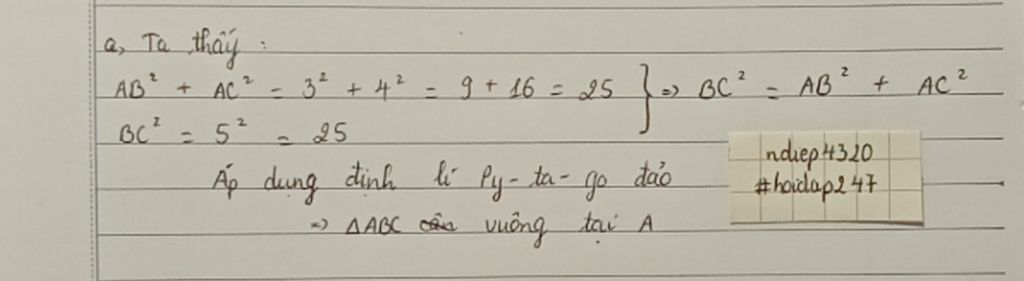 a, Ta thấy :
AB² + AC² = 3² + 4² = 9 + 16 = 25 } => BC² = AB² + AC²
BC² = 5² = 25
Áp dụng định lí Py-ta-go đảo
=> ΔABC vuông tại A
ndiep4320
#hoidap247